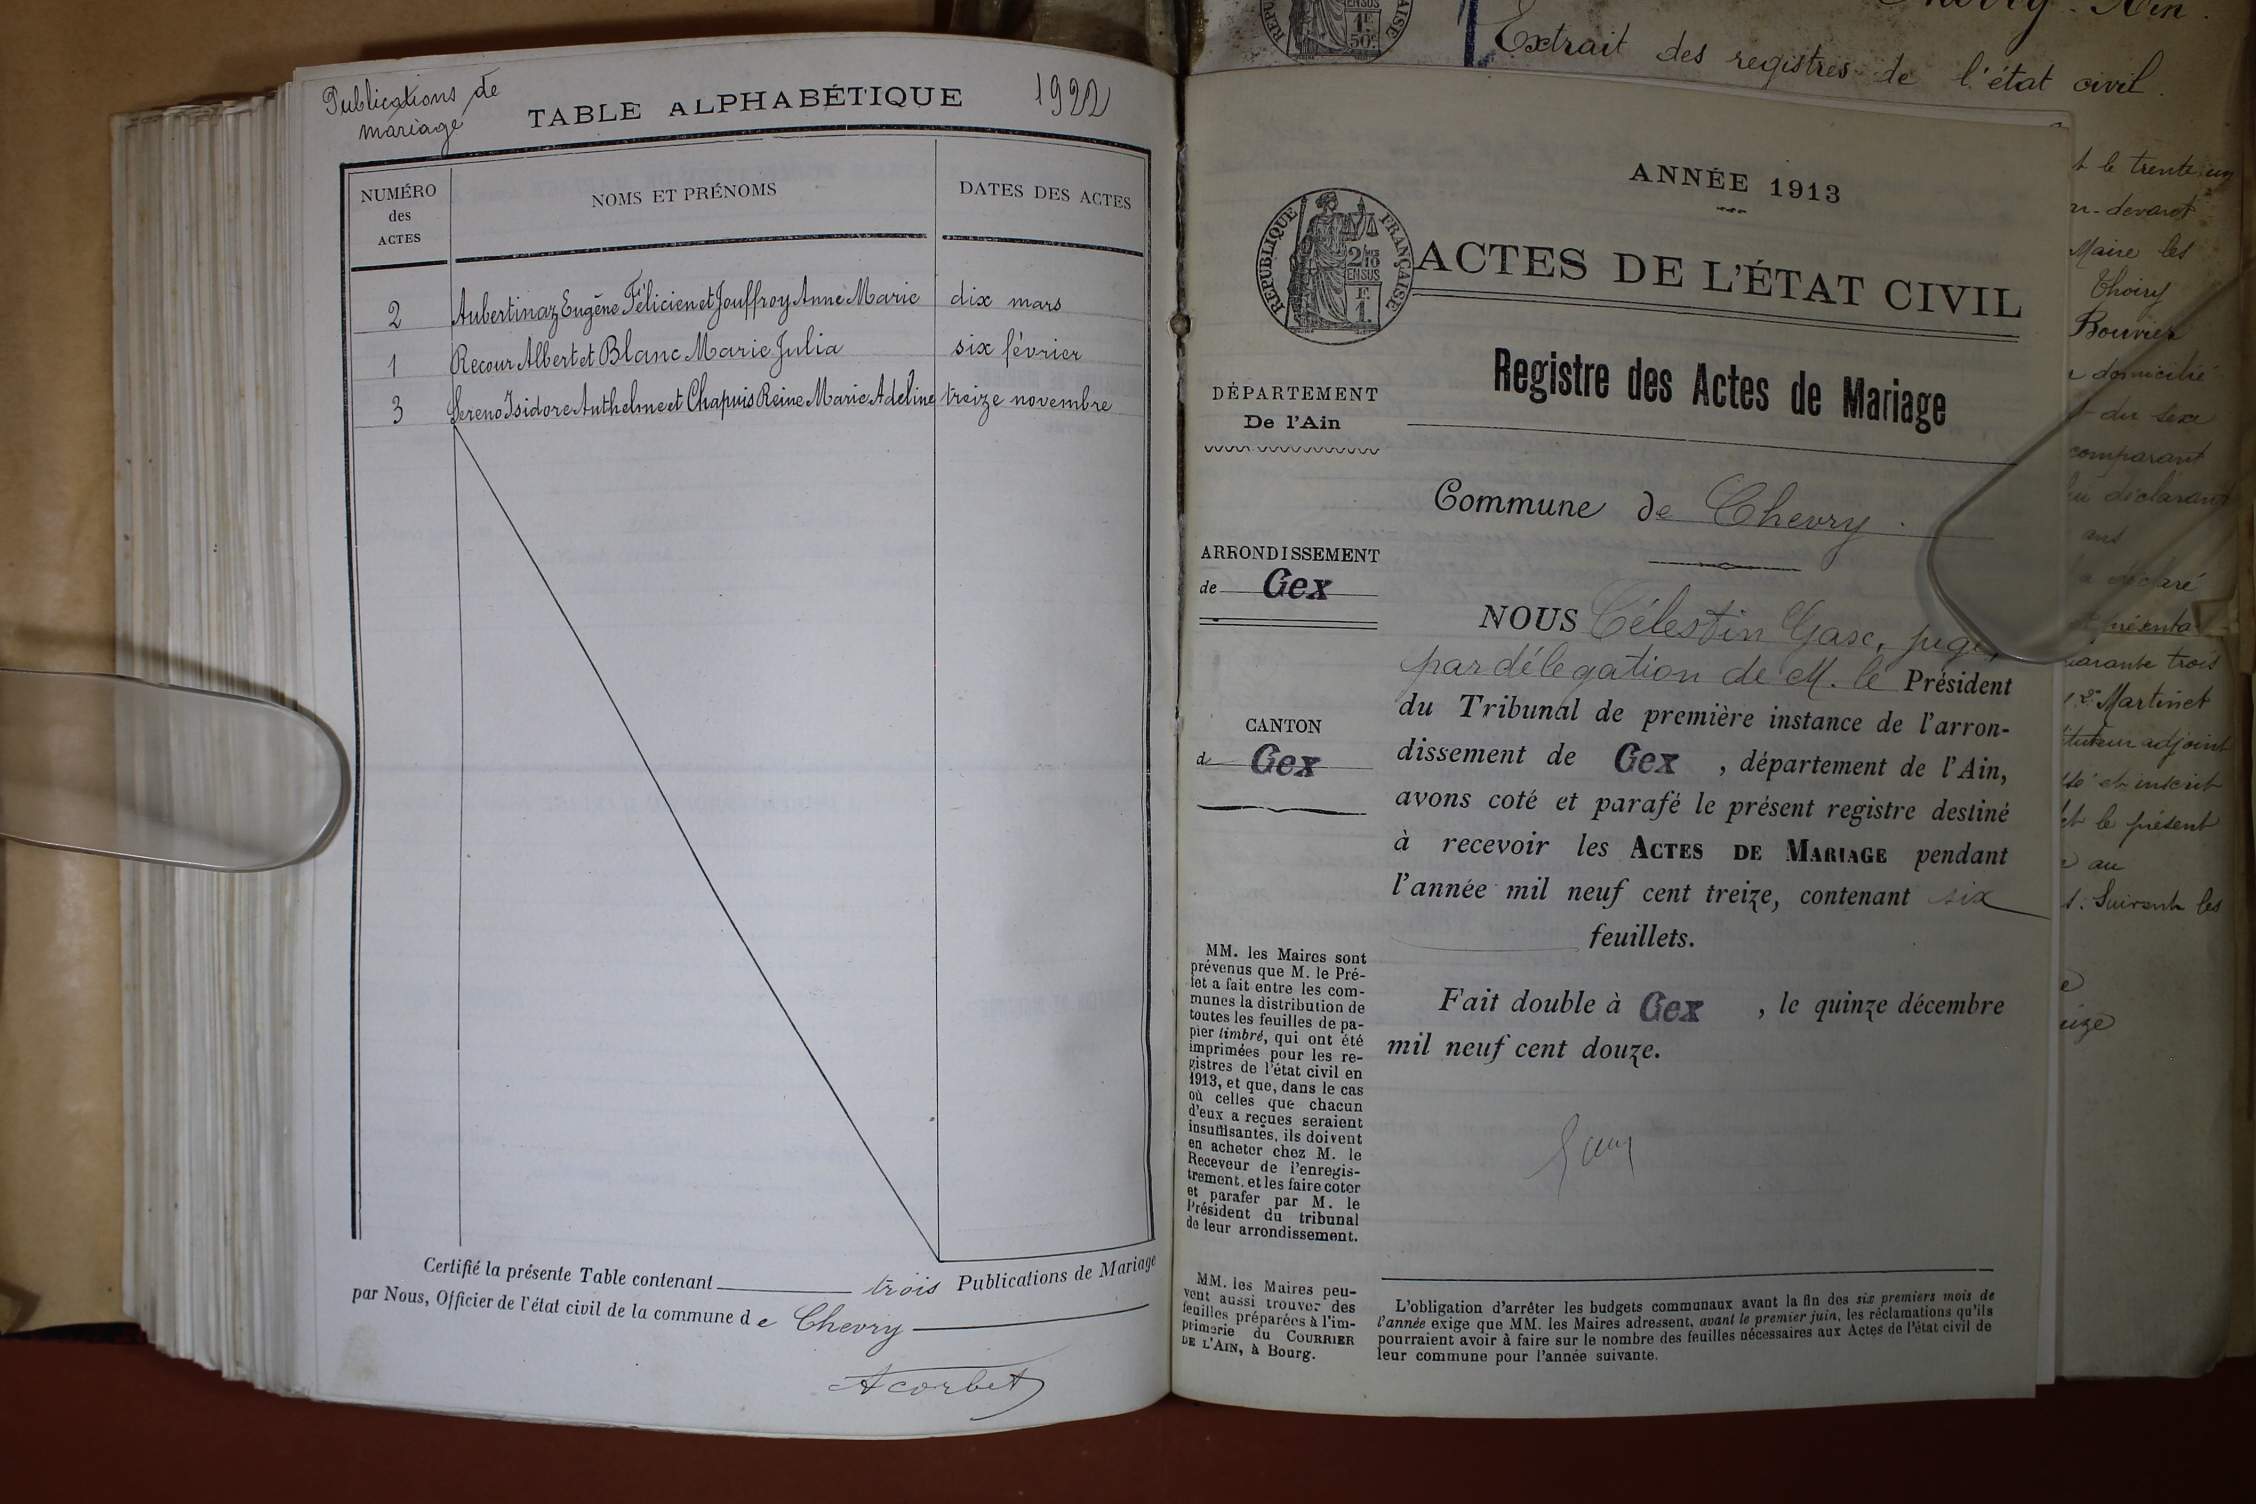 Publications de
mariage
TABLE ALPHABÉTIQUE
1922
NUMÉRO
des
ACTES
NOMS ET PRÉNOMS
DATES DES ACTES
2 Aubertinaz Eugène Félicien et Jouffroy Anne Marie dix mars
1 Recour Albert et Blanc Marie Julia six février
3 Sereno Isidore Anthelme et Chapuis Reine Marie Adeline treize novembre
Certifié la présente Table contenant trois Publications de Mariage
par Nous, Officier de l'état civil de la commune de Chevry
Acorbet
Extrait des registres de l'état civil.
ANNÉE 1913
RÉPUBLIQUE FRANÇAISE
2/10
EN SUS
F.
1.
ACTES DE L'ÉTAT CIVIL
Registre des Actes de Mariage
DÉPARTEMENT
De l'Ain
Commune de Chevry.
ARRONDISSEMENT
de Gex
CANTON
de Gex
NOUS Célestin Gasc, juge,
par délégation de M. le Président
du Tribunal de première instance de l'arron-
dissement de Gex, département de l'Ain,
avons coté et parafé le présent registre destiné
à recevoir les ACTES DE MARIAGE pendant
l'année mil neuf cent treize, contenant six
feuillets.
Fait double à Gex, le quinze décembre
mil neuf cent douze.
MM. les Maires sont
prévenus que M. le Pré-
fet a fait entre les com-
munes la distribution de
toutes les feuilles de pa-
pier timbré, qui ont été
imprimées pour les re-
gistres de l'état civil en
1913, et que, dans le cas
où celles que chacun
d'eux a reçues seraient
insuffisantes, ils doivent
en acheter chez M. le
Receveur de l'enregis-
trement, et les faire coter
et parafer par M. le
Président du tribunal
de leur arrondissement.
MM. les Maires peu-
vent aussi trouver des
feuilles préparées à l'im-
primerie du COURRIER
DE L'AIN, à Bourg.
L'obligation d'arrêter les budgets communaux avant la fin des six premiers mois de
l'année exige que MM. les Maires adressent, avant le premier juin, les réclamations qu'ils
pourraient avoir à faire sur le nombre des feuilles nécessaires aux Actes de l'état civil de
leur commune pour l'année suivante.
le trente un
devant
Maire les
Thoiry
Bouvier
domicilié
du sexe
comparant
déclarant
ans
déclaré
présenta
trois
Martinet
adjoint
et inscrit
le présent
au
Suivent les